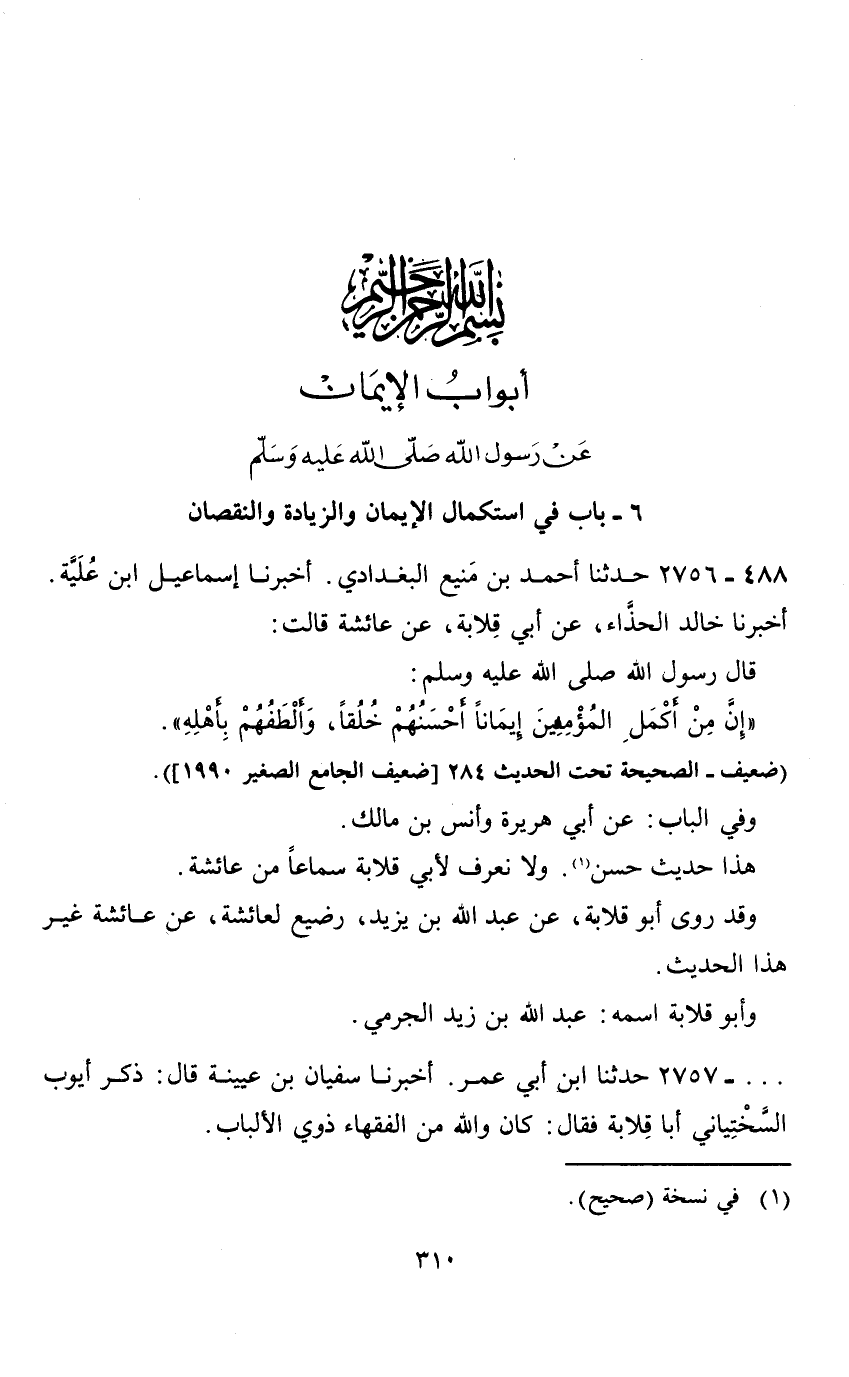 بسم الله الرحمن الرحيم
أبوابُ الإيمَان
عَن رَسول الله صَلّى الله عَليه وَسَلّم
٦ ـ باب في استكمال الإيمان والزيادة والنقصان
٤٨٨ ـ ٢٧٥٦ حدثنا أحمد بن مَنيع البغدادي. أخبرنا إسماعيل ابن عُلَيَّة.
أخبرنا خالد الحذَّاء، عن أبي قِلابة، عن عائشة قالت:
قال رسول الله صلى الله عليه وسلم:
«إِنَّ مِنْ أَكْمَلِ المُؤْمِنِينَ إِيمَاناً أَحْسَنُهُمْ خُلُقاً، وَأَلْطَفُهُمْ بِأَهْلِهِ».
(ضعيف ـ الصحيحة تحت الحديث ٢٨٤ [ضعيف الجامع الصغير ١٩٩٠]).
وفي الباب: عن أبي هريرة وأنس بن مالك.
هذا حديث حسن(١). ولا نعرف لأبي قلابة سماعاً من عائشة.
وقد روى أبو قلابة، عن عبد الله بن يزيد، رضيع لعائشة، عن عائشة غير
هذا الحديث.
وأبو قلابة اسمه: عبد الله بن زيد الجرمي.
... ـ ٢٧٥٧ حدثنا ابن أبي عمر. أخبرنا سفيان بن عيينة قال: ذكر أيوب
السَّخْتِياني أبا قِلابة فقال: كان والله من الفقهاء ذوي الألباب.
(١) في نسخة (صحيح).
٣١٠